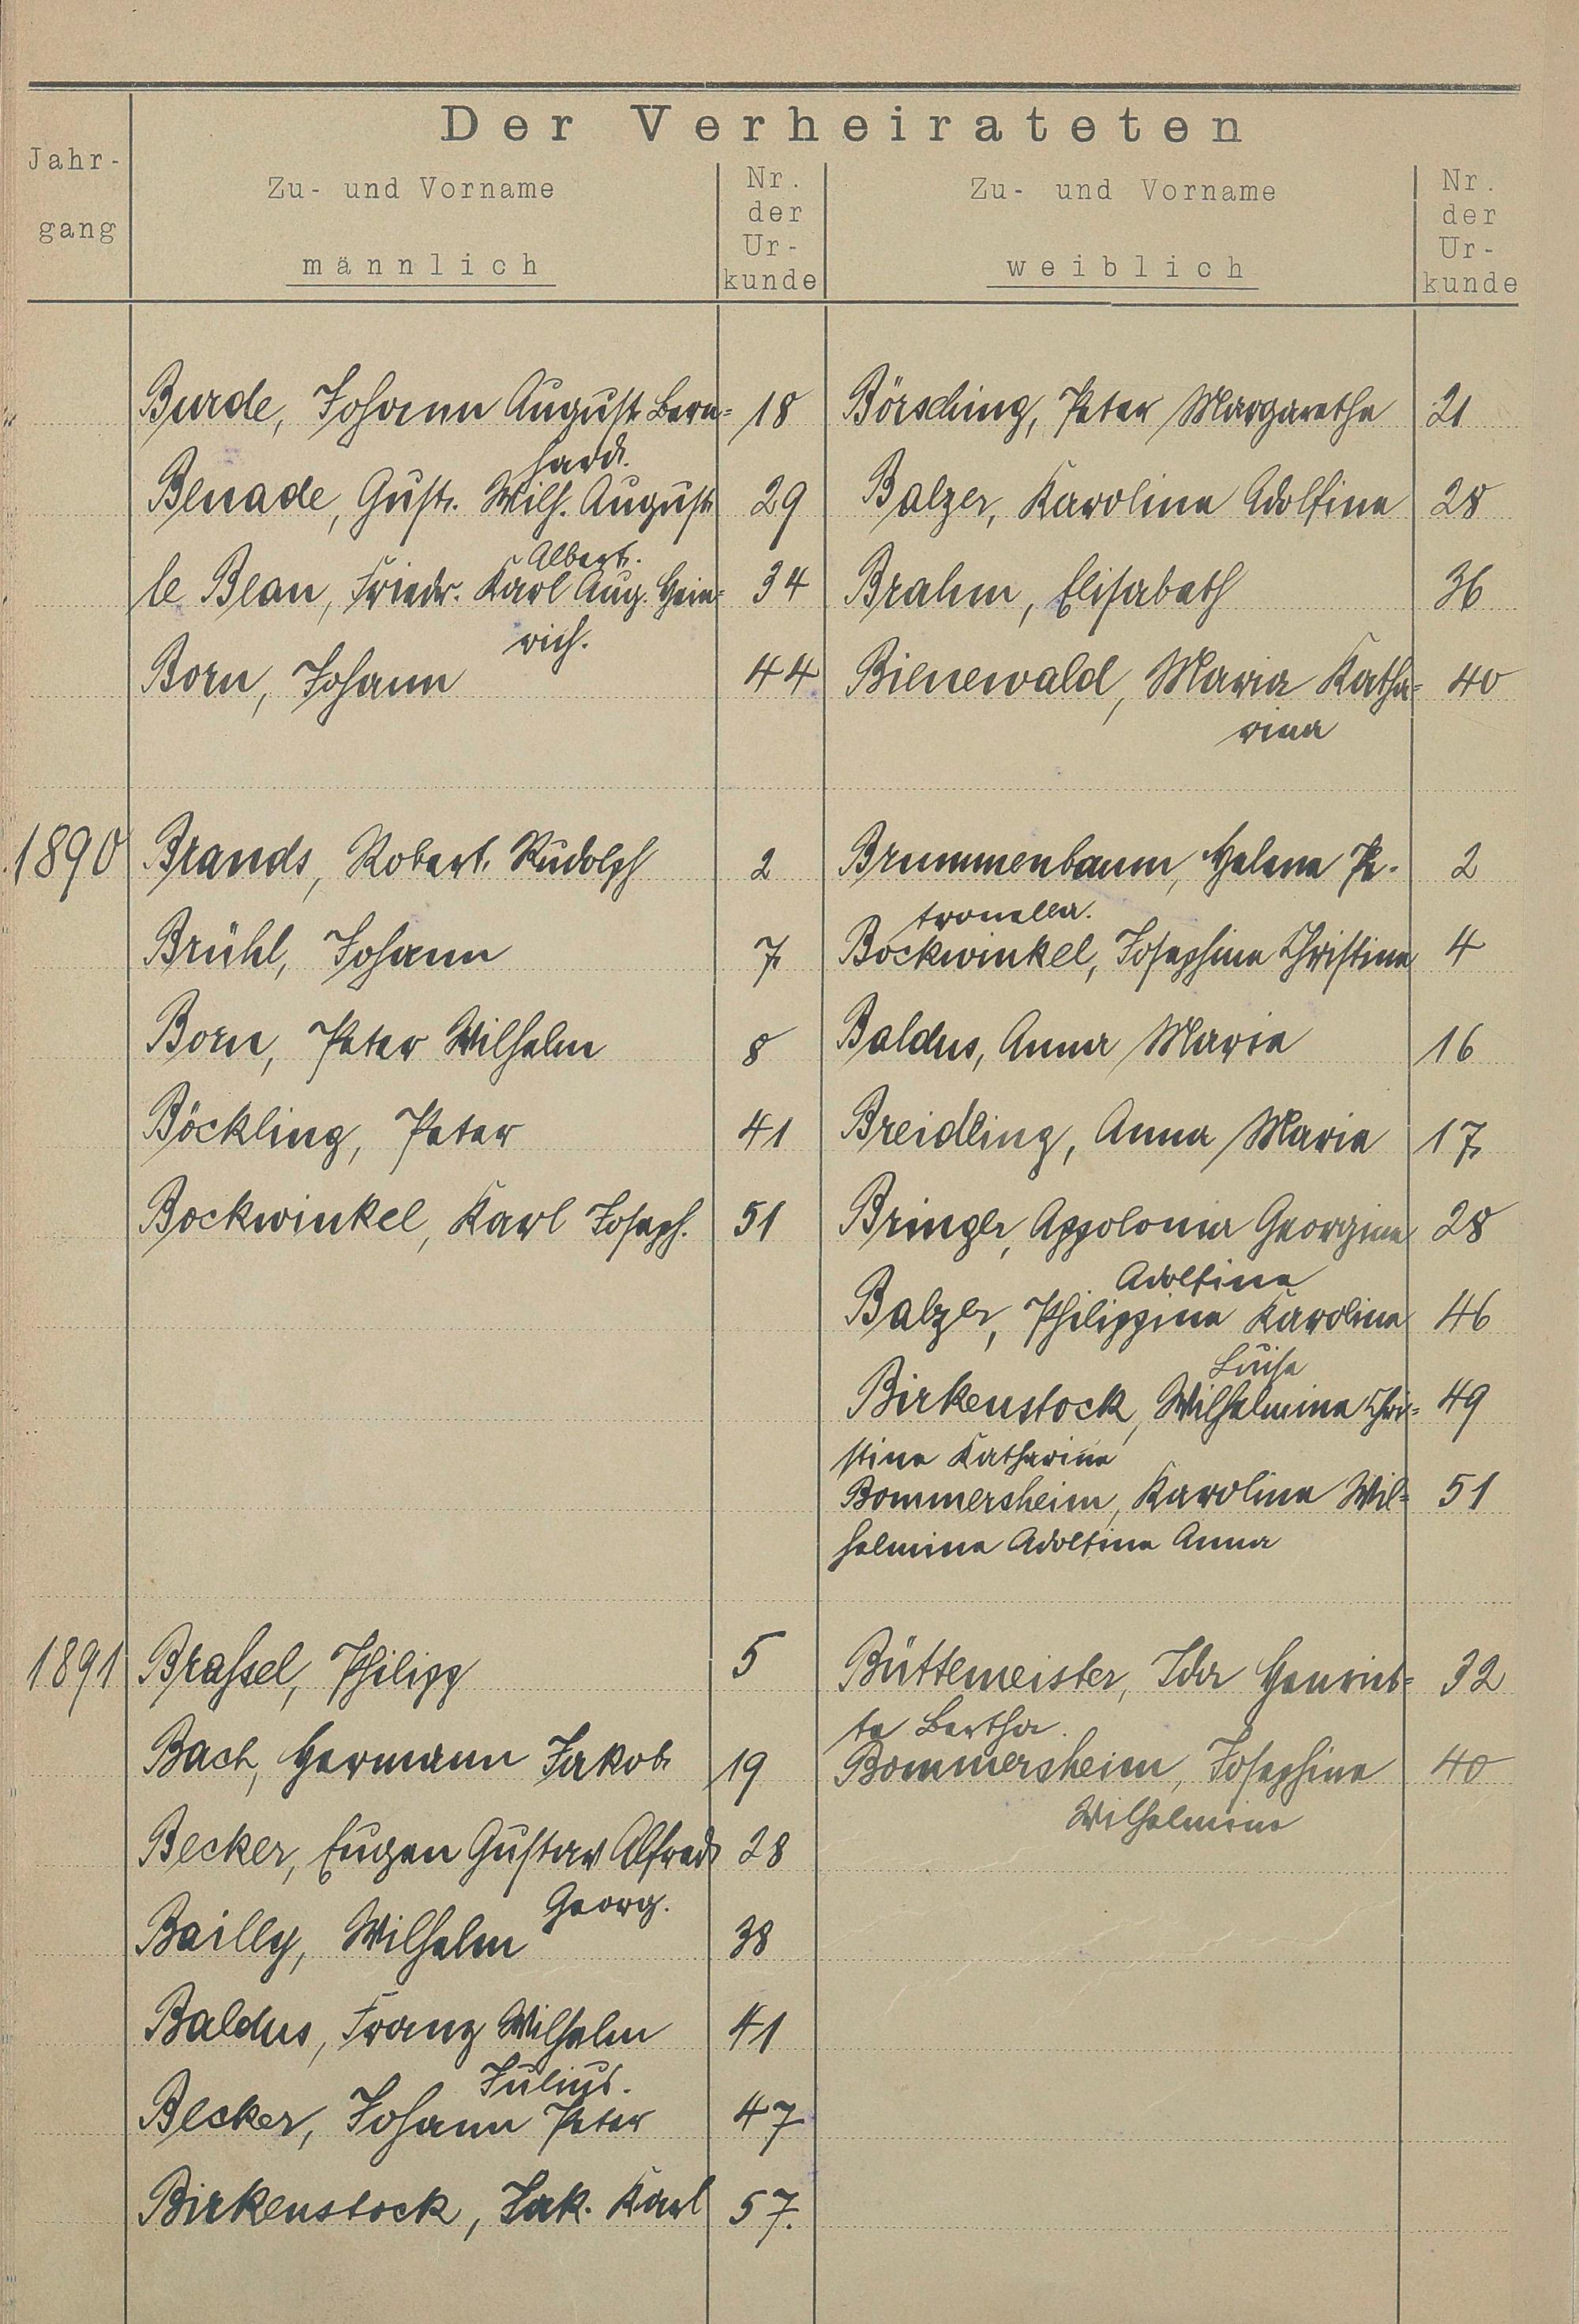 Der Verheirateten
Jahr-
gang
Zu- und Vorname
männlich
Nr.
der
Ur-
kunde
Zu- und Vorname
weiblich
Nr.
der
Ur-
kunde
Burde, Johann August Bern= 18 Börsching, Peter Margarethe 21
hard.
Benade, Gust. Wilh. August 29 Balzer, Karoline Adolfine 28
Albert.
le Bean, Friedr. Karl Aug. Hein= 34 Brahm, Elisabeth 36
rich.
Born, Johann 44 Bienewald, Maria Katha= 40
rina
1890 Brands, Robert Rudolph 2 Brummenbaum, Helene Pe- 2
tronella.
Brühl, Johann 7 Bockwinkel, Josephine Christine 4
Born, Peter Wilhelm 8 Baldus, Anna Maria 16
Böckling, Peter 41 Breidling, Anna Maria 17
Bockwinkel, Karl Joseph. 51 Bringer, Appolonia Georgine 28
Adolfine
Balzer, Philippine Karoline 46
Luise
Birkenstock, Wilhelmine Chri= 49
stine Katharine
Bommersheim, Karoline Wil= 51
helmine Adolfine Anna
1891 Braßel, Philipp 5 Büttemeister, Ida Henriet= 32
te Bertha.
Bach, Hermann Jakob 19 Bommersheim, Josephine 40
Wilhelmine
Becker, Eugen Gustav Alfred 28
Georg.
Bailly, Wilhelm 38
Baldus, Franz Wilhelm 41
Julius.
Becker, Johann Peter 47
Birkenstock, Jak. Karl 57.